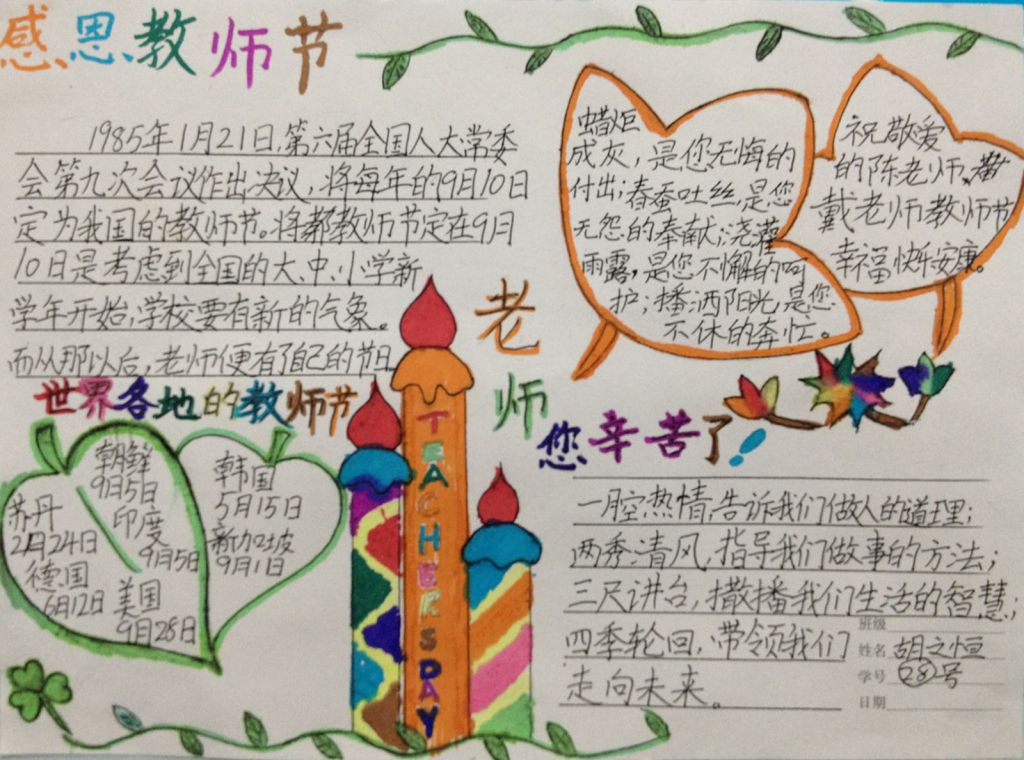 感恩教师节
1985年1月21日,第六届全国人大常委
会第九次会议作出决议,将每年的9月10日
定为我国的教师节。将都教师节定在9月
10日是考虑到全国的大、中、小学新
学年开始,学校要有新的气象。
而从那以后,老师便有了自己的节日
蜡炬
成灰,是您无悔的
付出;春蚕吐丝,是您
无怨的奉献;浇灌
雨露,是您不懈的呵
护;播洒阳光,是您
不休的奔忙。
祝敬爱
的陈老师、
戴老师教师节
幸福快乐安康。
世界各地的教师节
朝鲜
9月5日
印度
9月5日
苏丹
2月24日
德国
6月12日
美国
9月28日
韩国
5月15日
新加坡
9月1日
TEACHERSDAY
老
师
您辛苦了!
一腔热情,告诉我们做人的道理;
两秀清风,指导我们做事的方法;
三尺讲台,撒播我们生活的智慧;
四季轮回,带领我们
走向未来。
班级
姓名 胡之恒
学号 28号
日期